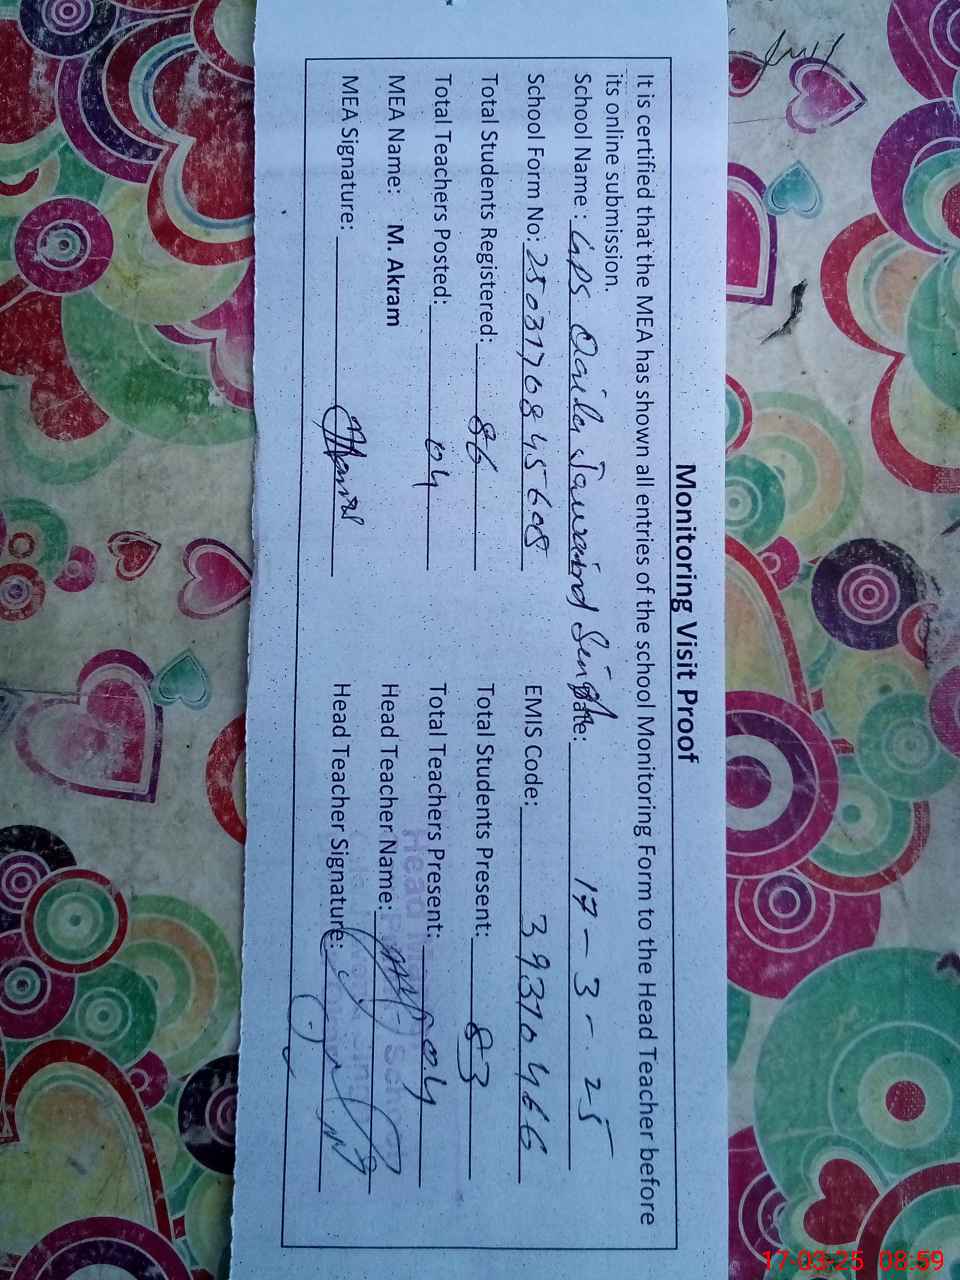 Monitoring Visit Proof
It is certified that the MEA has shown all entries of the school Monitoring Form to the Head Teacher before
its online submission.
School Name : GPS Qaila Jawaind Singh Date: 17-3-25
School Form No: 2503170845608 EMIS Code: 39310466
Total Students Registered: 86 Total Students Present: 83
Total Teachers Posted: 04 Total Teachers Present: 04
MEA Name: M. Akram Head Teacher Name:
MEA Signature: Head Teacher Signature:
17-03-25 08:59